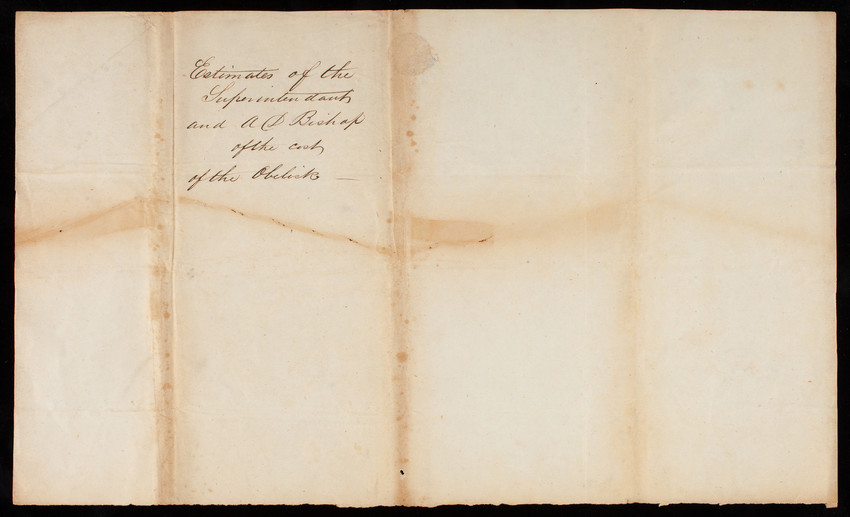 Estimates of the
Superintendant
and A D Bishop
of the cost
of the Obelisk —